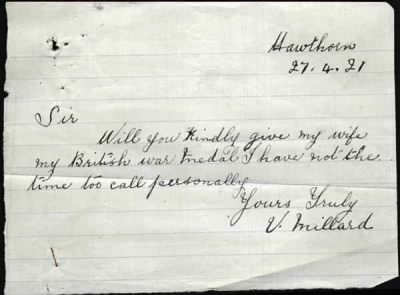 Hawthorn
27.4.21
Sir
Will you kindly give my wife
my British war medal I have not the
time too call personally
Yours Truly
V. Millard